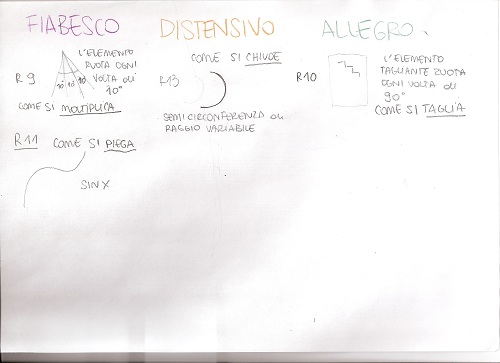 FIABESCO
R9
10° 10° 10°
L'ELEMENTO
RUOTA OGNI
VOLTA di
10°
COME SI MOLTIPLICA
R11 COME SI PIEGA
SIN X
DISTENSIVO
COME SI CHIUDE
R13
SEMICIRCONFERENZA di
RAGGIO VARIABILE
ALLEGRO
R10
L'ELEMENTO
TAGLIANTE RUOTA
OGNI VOLTA di
90°
COME SI TAGLIA